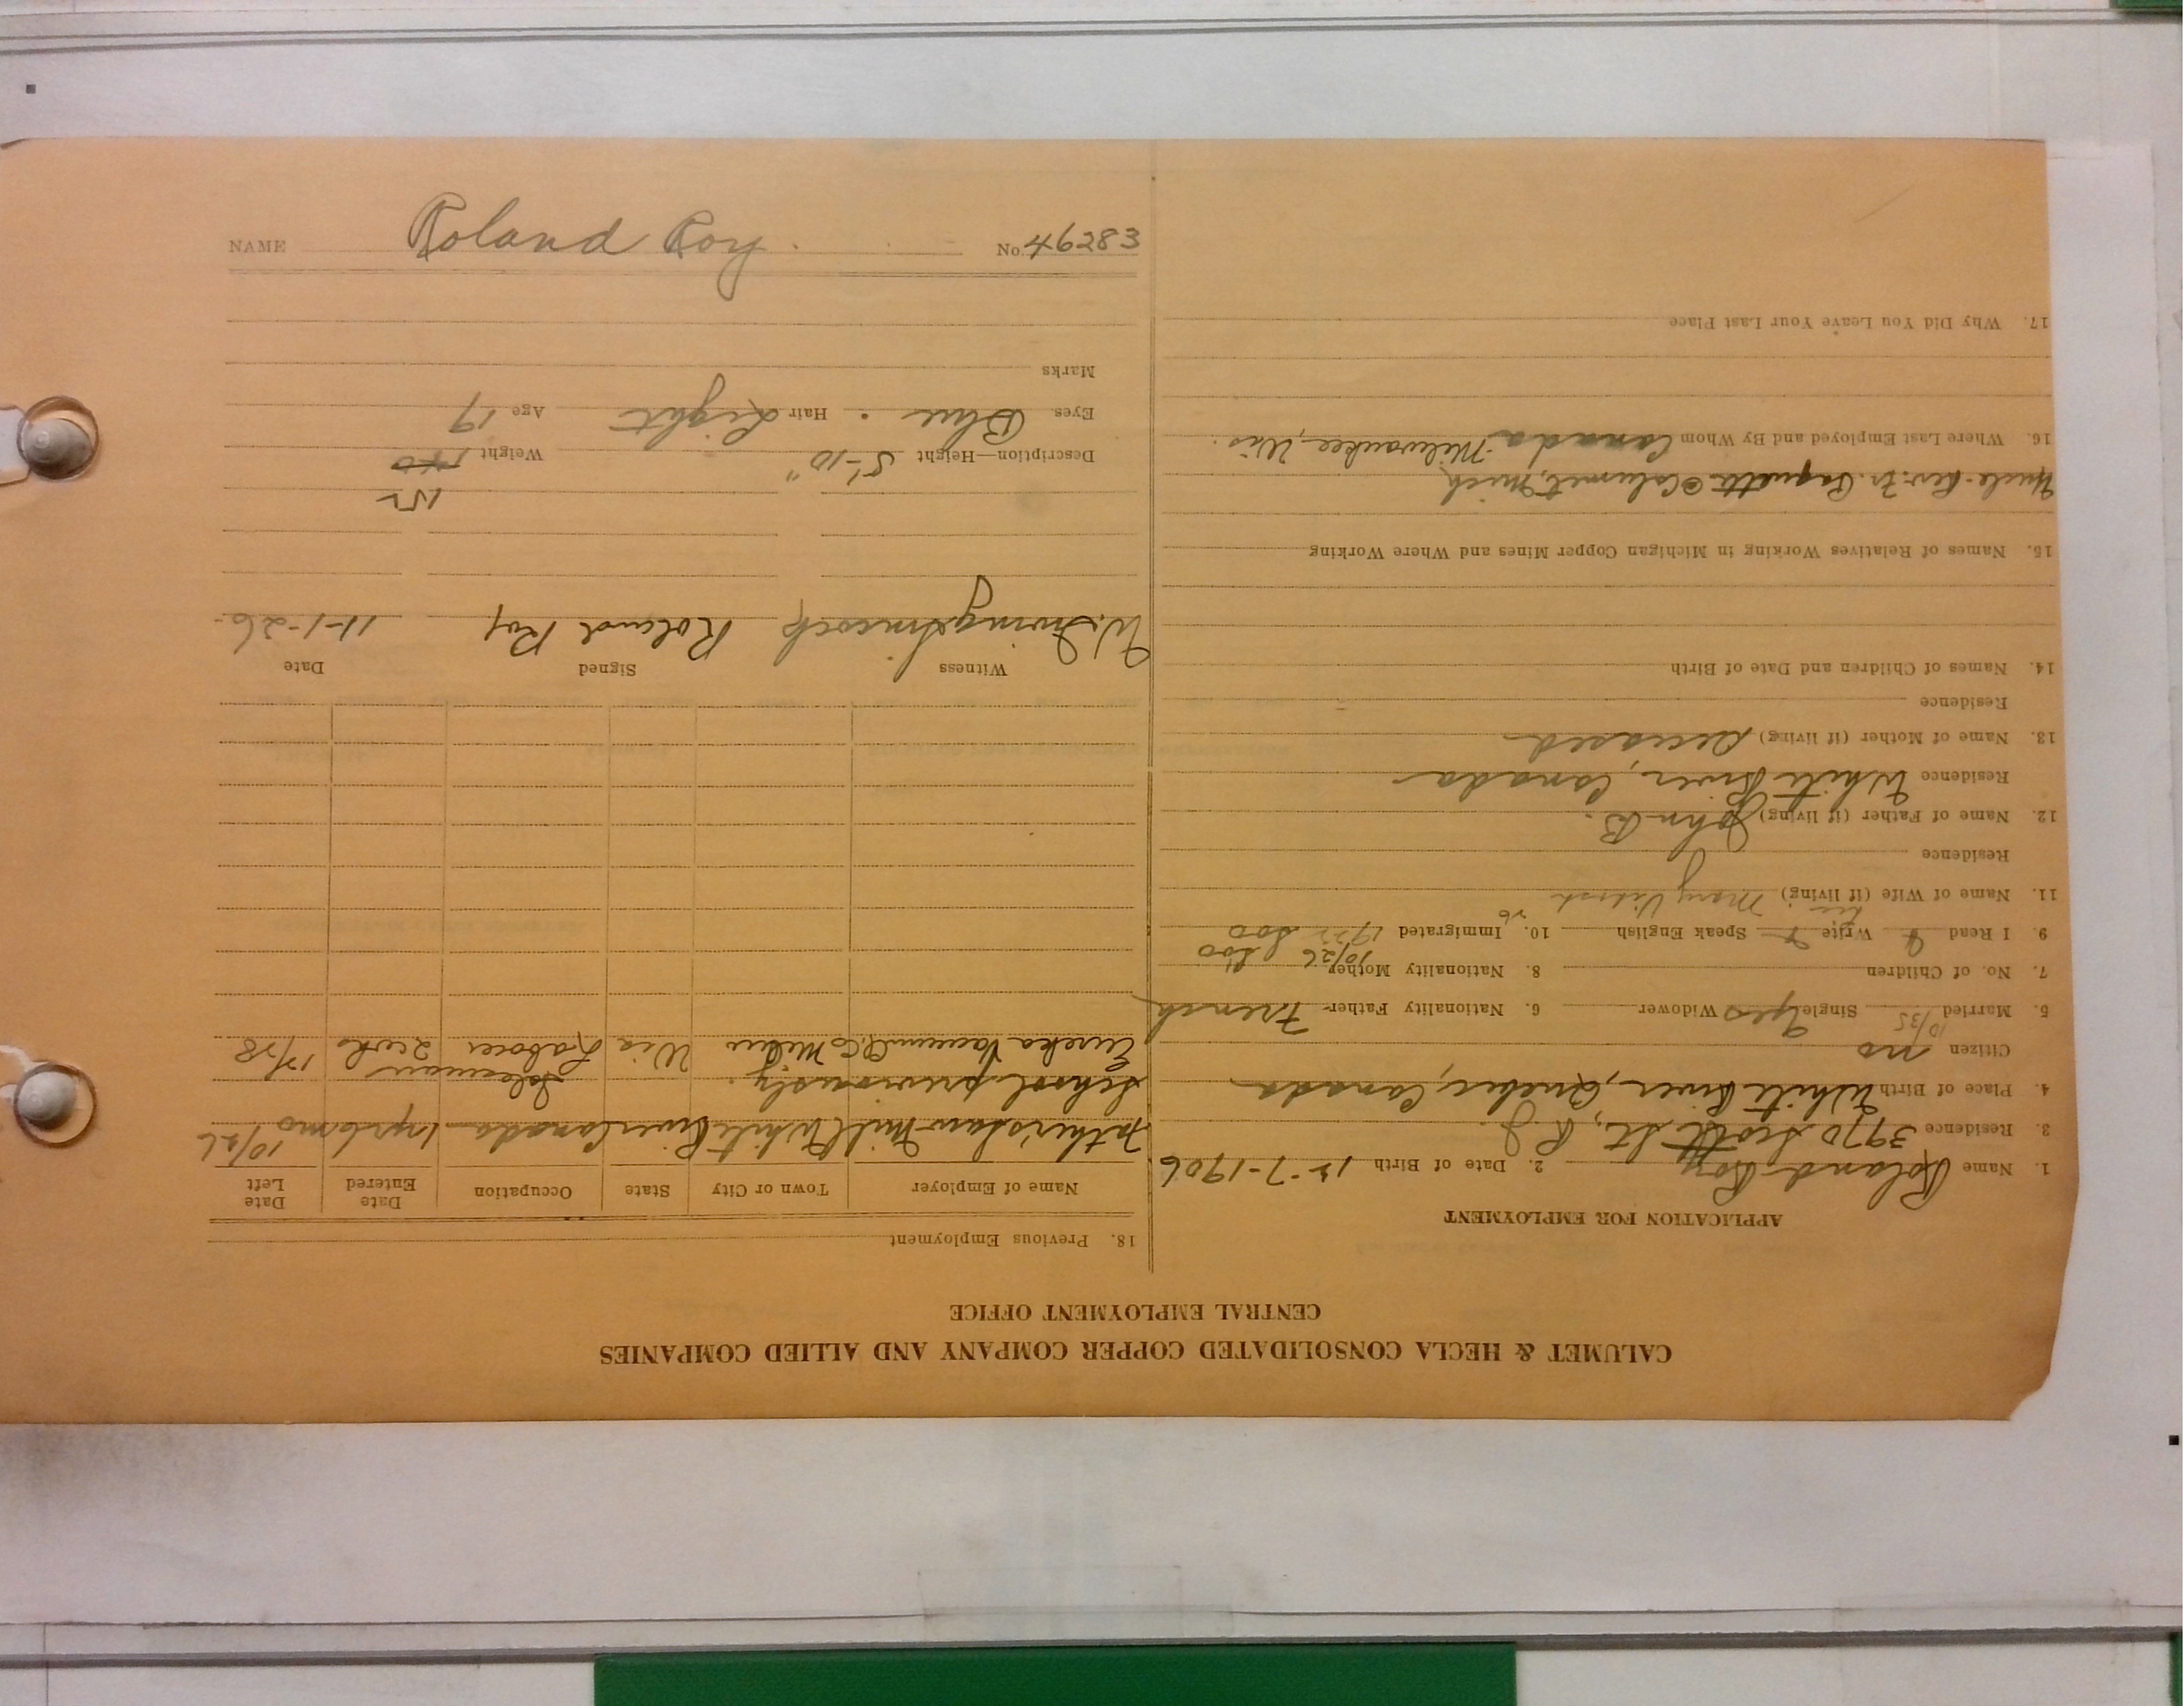 CALUMET & HECLA CONSOLIDATED COPPER COMPANY AND ALLIED COMPANIES
CENTRAL EMPLOYMENT OFFICE
APPLICATION FOR EMPLOYMENT
1. Name Roland Roy 2. Date of Birth 12-7-1906
3. Residence 3970 Scott St., R J.
4. Place of Birth White River, Quebec, Canada
Citizen no
5. Married 10/35 Single yes Widower 6. Nationality Father French
7. No. of Children 8. Nationality Mother
10/26 Soo
9. I Read Write Speak English 10. Immigrated Soo
11. Name of Wife (if living) Mary
Residence
12. Name of Father (if living) John B.
Residence White River, Canada
13. Name of Mother (if living) Deceased
Residence
14. Names of Children and Date of Birth
15. Names of Relatives Working in Michigan Copper Mines and Where Working
Uncle-Rev. Fr. Paquette @ Calumet, Mich
16. Where Last Employed and By Whom Canada Milwaukee, Wis.
17. Why Did You Leave Your Last Place
18. Previous Employment
Name of Employer Town or City State Occupation Date Entered Date Left
Father's Saw Mill White River Canada 1 yr 6 mo 10/26
School previously. Salesman
Eureka Vacuum Cl. Co Milw Wis Laborer 2 wks 12/28
Witness Signed Date
W. Irving Simcock Roland Roy 11-1-26.
152
Description—Height 5'-10" Weight 140
Eyes Blue Hair Light Age 19
Marks
NAME Roland Roy. No. 46283